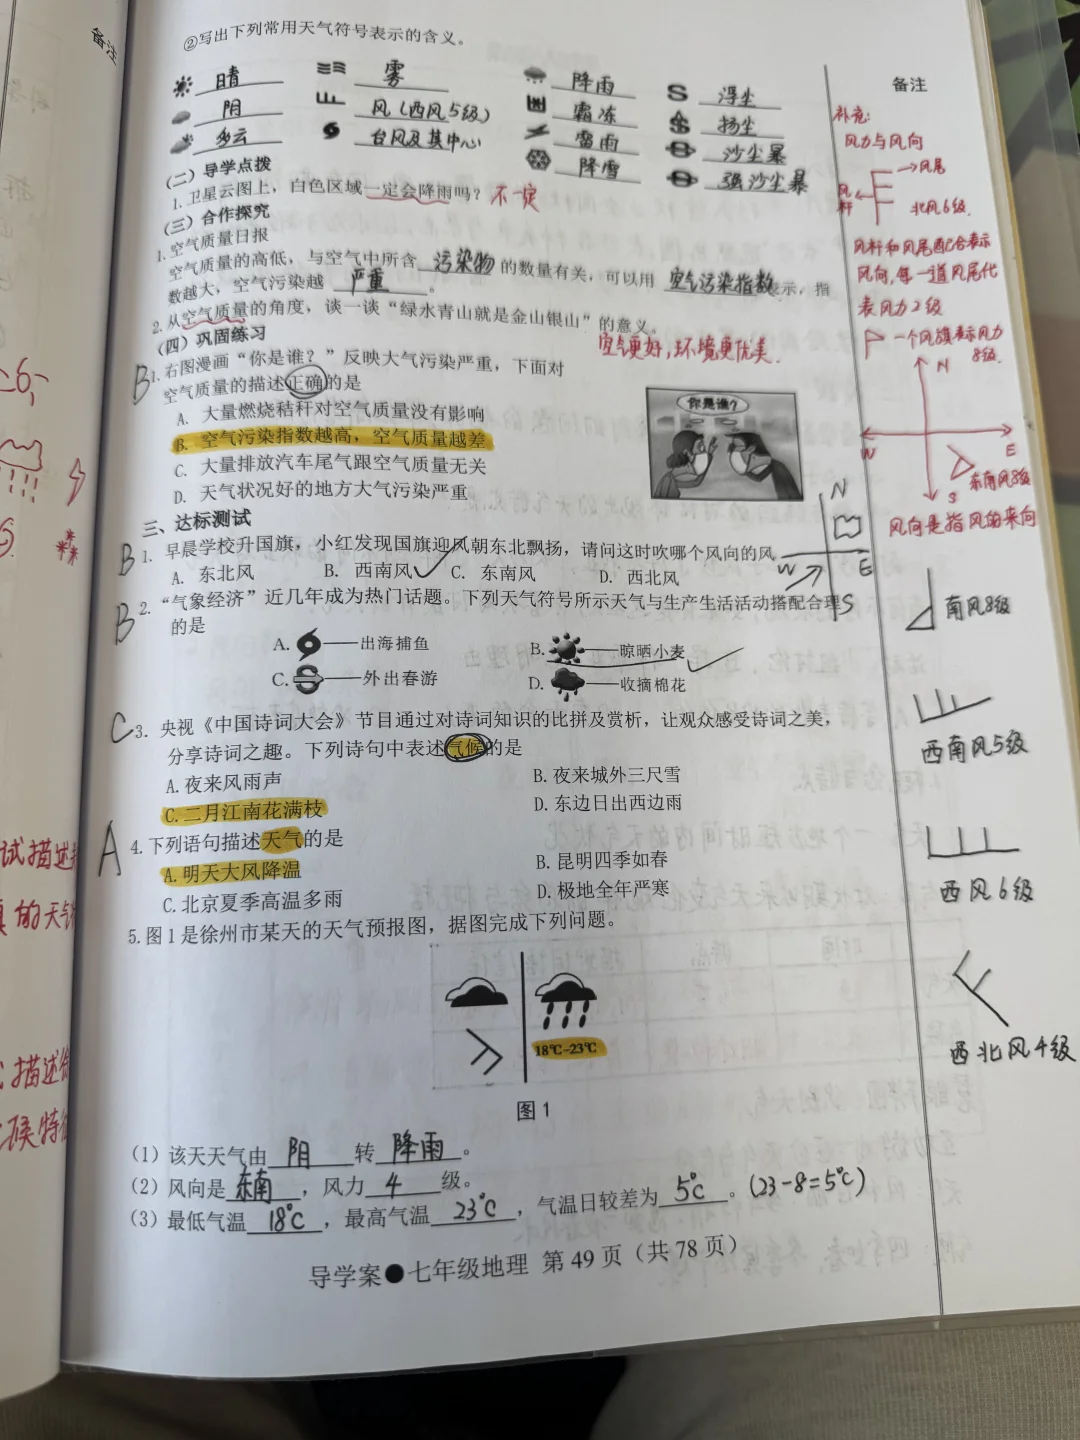 备注
②写出下列常用天气符号表示的含义。
晴 雾 降雨 浮尘
阴 风(西风5级) 霜冻 扬尘
多云 台风及其中心 雷雨 沙尘暴
降雪 强沙尘暴
(二)导学点拨
1.卫星云图上,白色区域一定会降雨吗?不一定
(三)合作探究
1.空气质量日报
空气质量的高低,与空气中所含 污染物 的数量有关,可以用 空气污染指数 表示,指
数越大,空气污染越 严重 。
2.从空气质量的角度,谈一谈“绿水青山就是金山银山”的意义。
空气更好,环境更优美.
(四)巩固练习
B 1.右图漫画“你是谁?”反映大气污染严重,下面对
空气质量的描述正确的是
A. 大量燃烧秸秆对空气质量没有影响
B. 空气污染指数越高,空气质量越差
C. 大量排放汽车尾气跟空气质量无关
D. 天气状况好的地方大气污染严重
你是谁?
三、达标测试
B 1. 早晨学校升国旗,小红发现国旗迎风朝东北飘扬,请问这时吹哪个风向的风
A. 东北风 B. 西南风 C. 东南风 D. 西北风
N
W E
S
B 2.“气象经济”近几年成为热门话题。下列天气符号所示天气与生产生活活动搭配合理
的是
A. ——出海捕鱼 B. ——晾晒小麦
C. ——外出春游 D. ——收摘棉花
C 3. 央视《中国诗词大会》节目通过对诗词知识的比拼及赏析,让观众感受诗词之美,
分享诗词之趣。下列诗句中表述气候的是
A.夜来风雨声 B.夜来城外三尺雪
C.二月江南花满枝 D.东边日出西边雨
A 4.下列语句描述天气的是
A.明天大风降温 B.昆明四季如春
C.北京夏季高温多雨 D.极地全年严寒
5.图1是徐州市某天的天气预报图,据图完成下列问题。
18℃-23℃
图1
(1)该天天气由 阴 转 降雨 。
(2)风向是 东南 ,风力 4 级。
(3)最低气温 18℃ ,最高气温 23℃ ,气温日较差为 5℃ 。(23-8=5℃)
导学案●七年级地理 第49页(共78页)
备注
补充:
风力与风向
→风尾
风杆
北风6级.
风杆和风尾配合表示
风向,每一道风尾代
表风力2级
一个风旗表示风力
8级.
N
W E
S 东南风8级
风向是指风的来向
南风8级
西南风5级
西风6级
西北风4级